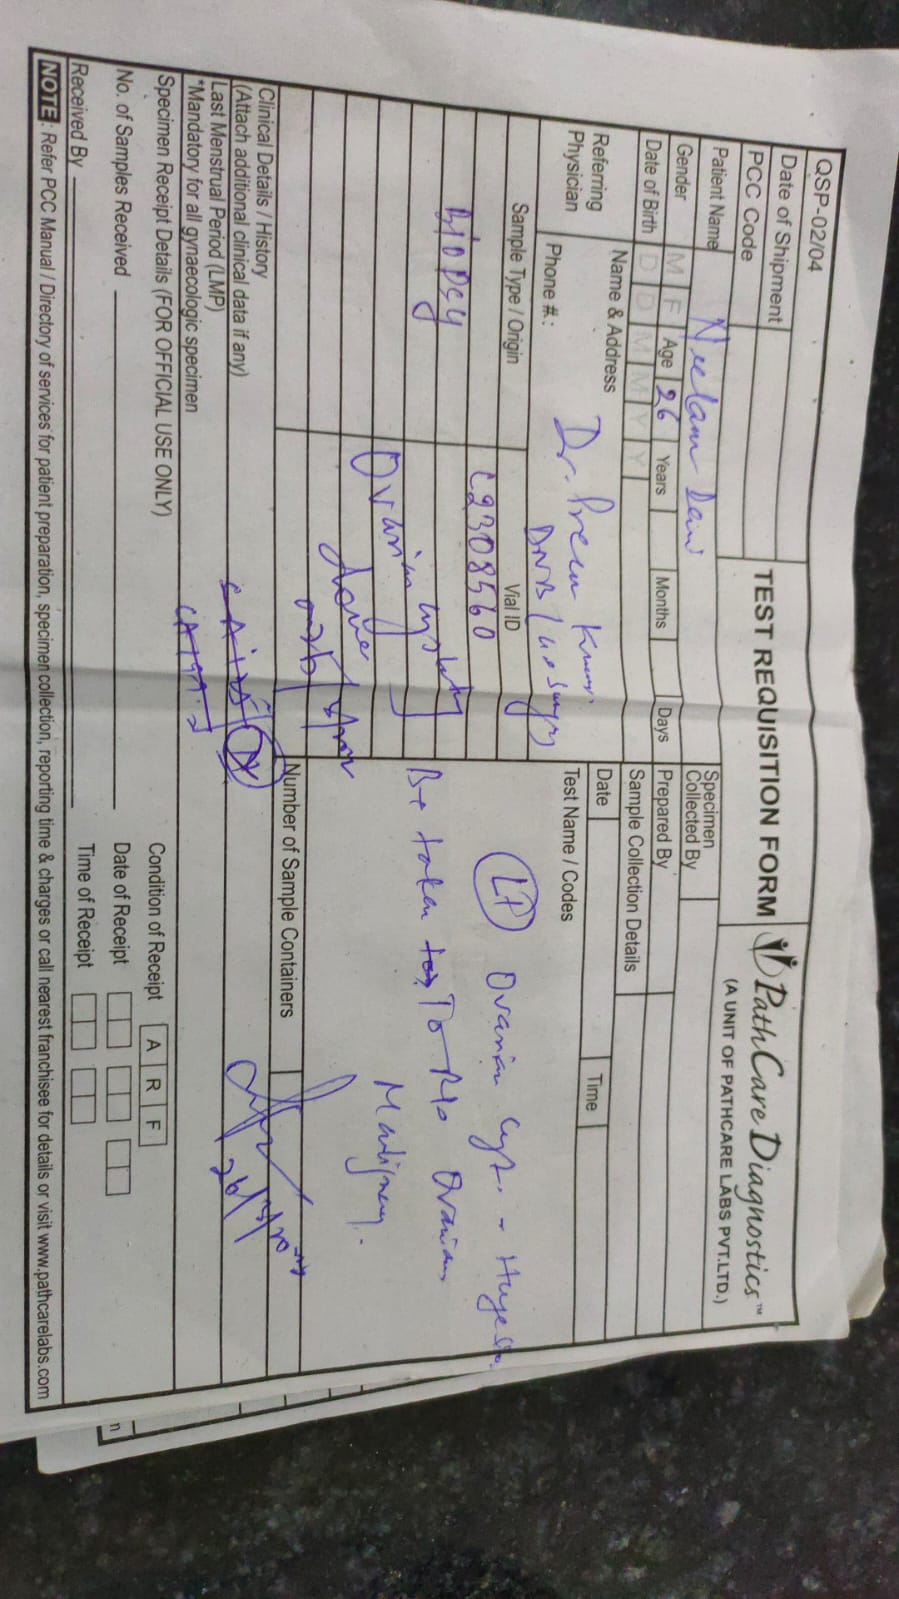 QSP-02/04
Date of Shipment
TEST REQUISITION FORM
PathCare Diagnostics™
(A UNIT OF PATHCARE LABS PVT.LTD.)
PCC Code
Patient Name Neelam Devi
Specimen Collected By
Gender M F Age 26 Years Months Days
Prepared By
Date of Birth D D M M Y Y
Sample Collection Details
Referring Physician
Name & Address Dr. Prem Kumar
DNB
Phone #.:
Date Time
Sample Type / Origin
Vial ID
Test Name / Codes
C2308560
LT Ovarian Cyst. - Huge
BIOPSY
Ovarian cystectomy
Be taken to To R/o Ovarian
Malignancy.
done
on
Number of Sample Containers
Clinical Details / History
(Attach additional clinical data if any)
Last Menstrual Period (LMP)
*Mandatory for all gynaecologic specimen
Specimen Receipt Details (FOR OFFICIAL USE ONLY)
Condition of Receipt A R F
No. of Samples Received
Date of Receipt
Received By
Time of Receipt
NOTE: Refer PCC Manual / Directory of services for patient preparation, specimen collection, reporting time & charges or call nearest franchisee for details or visit www.pathcarelabs.com